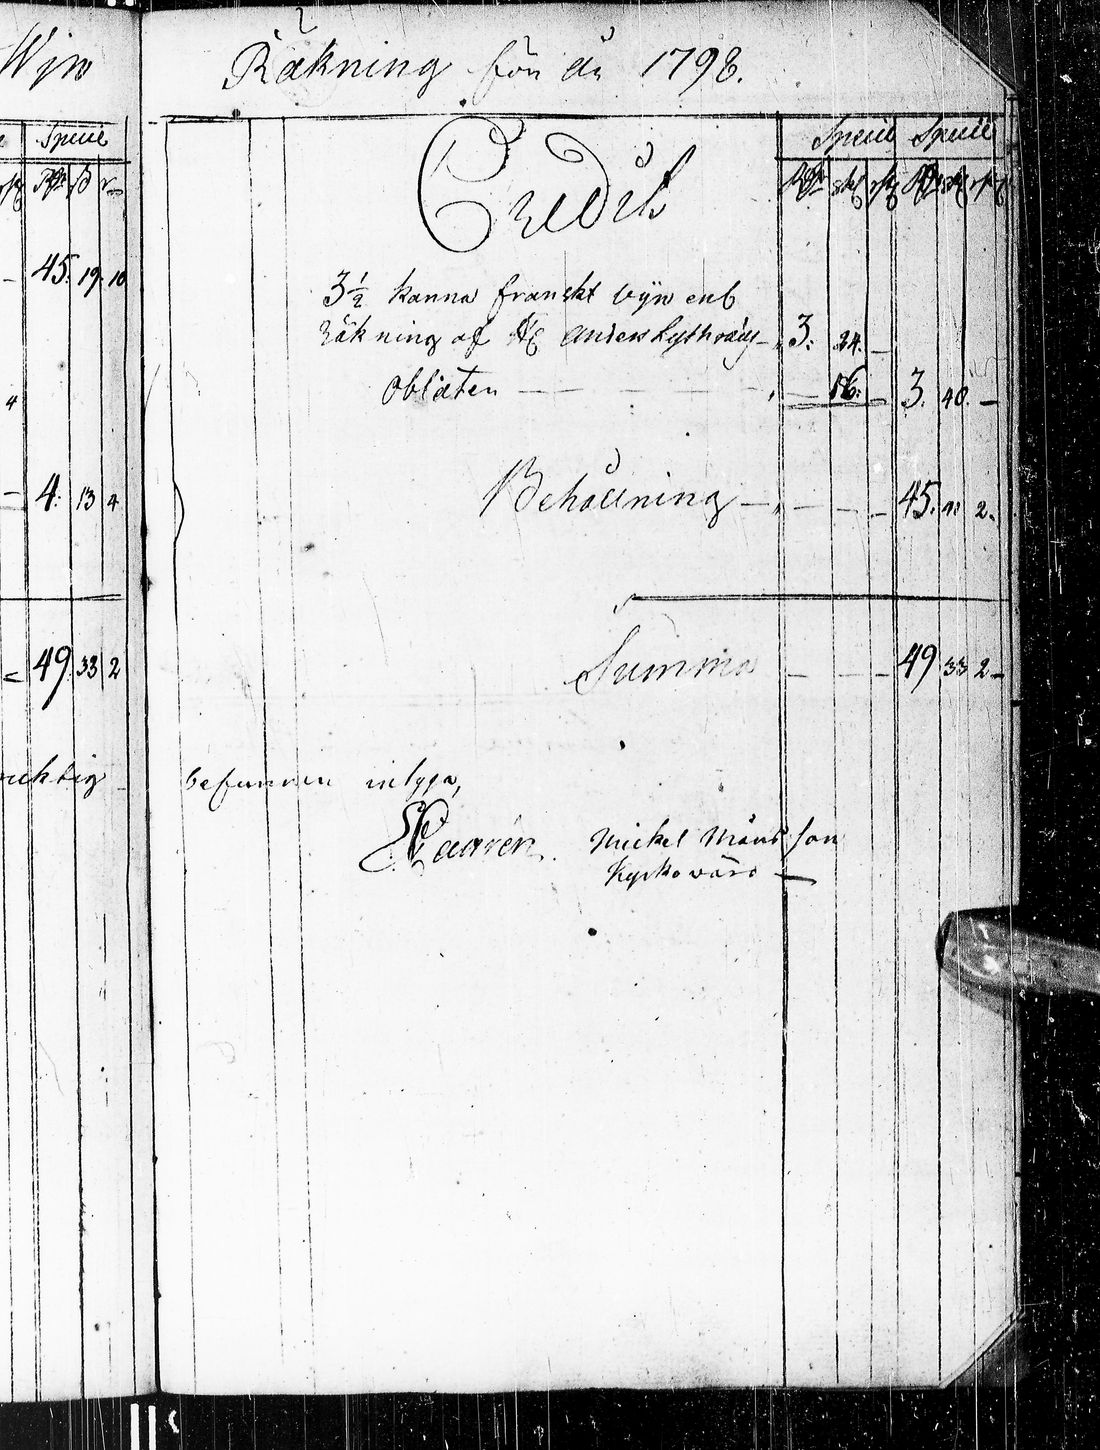 Wjn
Specie
Rdr ß rs
45. 19. 10
4
4. 13 4
49. 33 2
ricktig
Räkning för år 1798.
Specie Specie
Rdr skl rst Rdr skl rst
Credit
3 1/2 kanna franskt wijn enl
Räkning af Anders 3: 24. —
Oblaten — — — 16: — 3. 40. —
Behållning — — — — 45. 41 2.
Summa — — 49 33 2 —
befunnen intyga,
Mickel Månsson
Kyrkovärd —